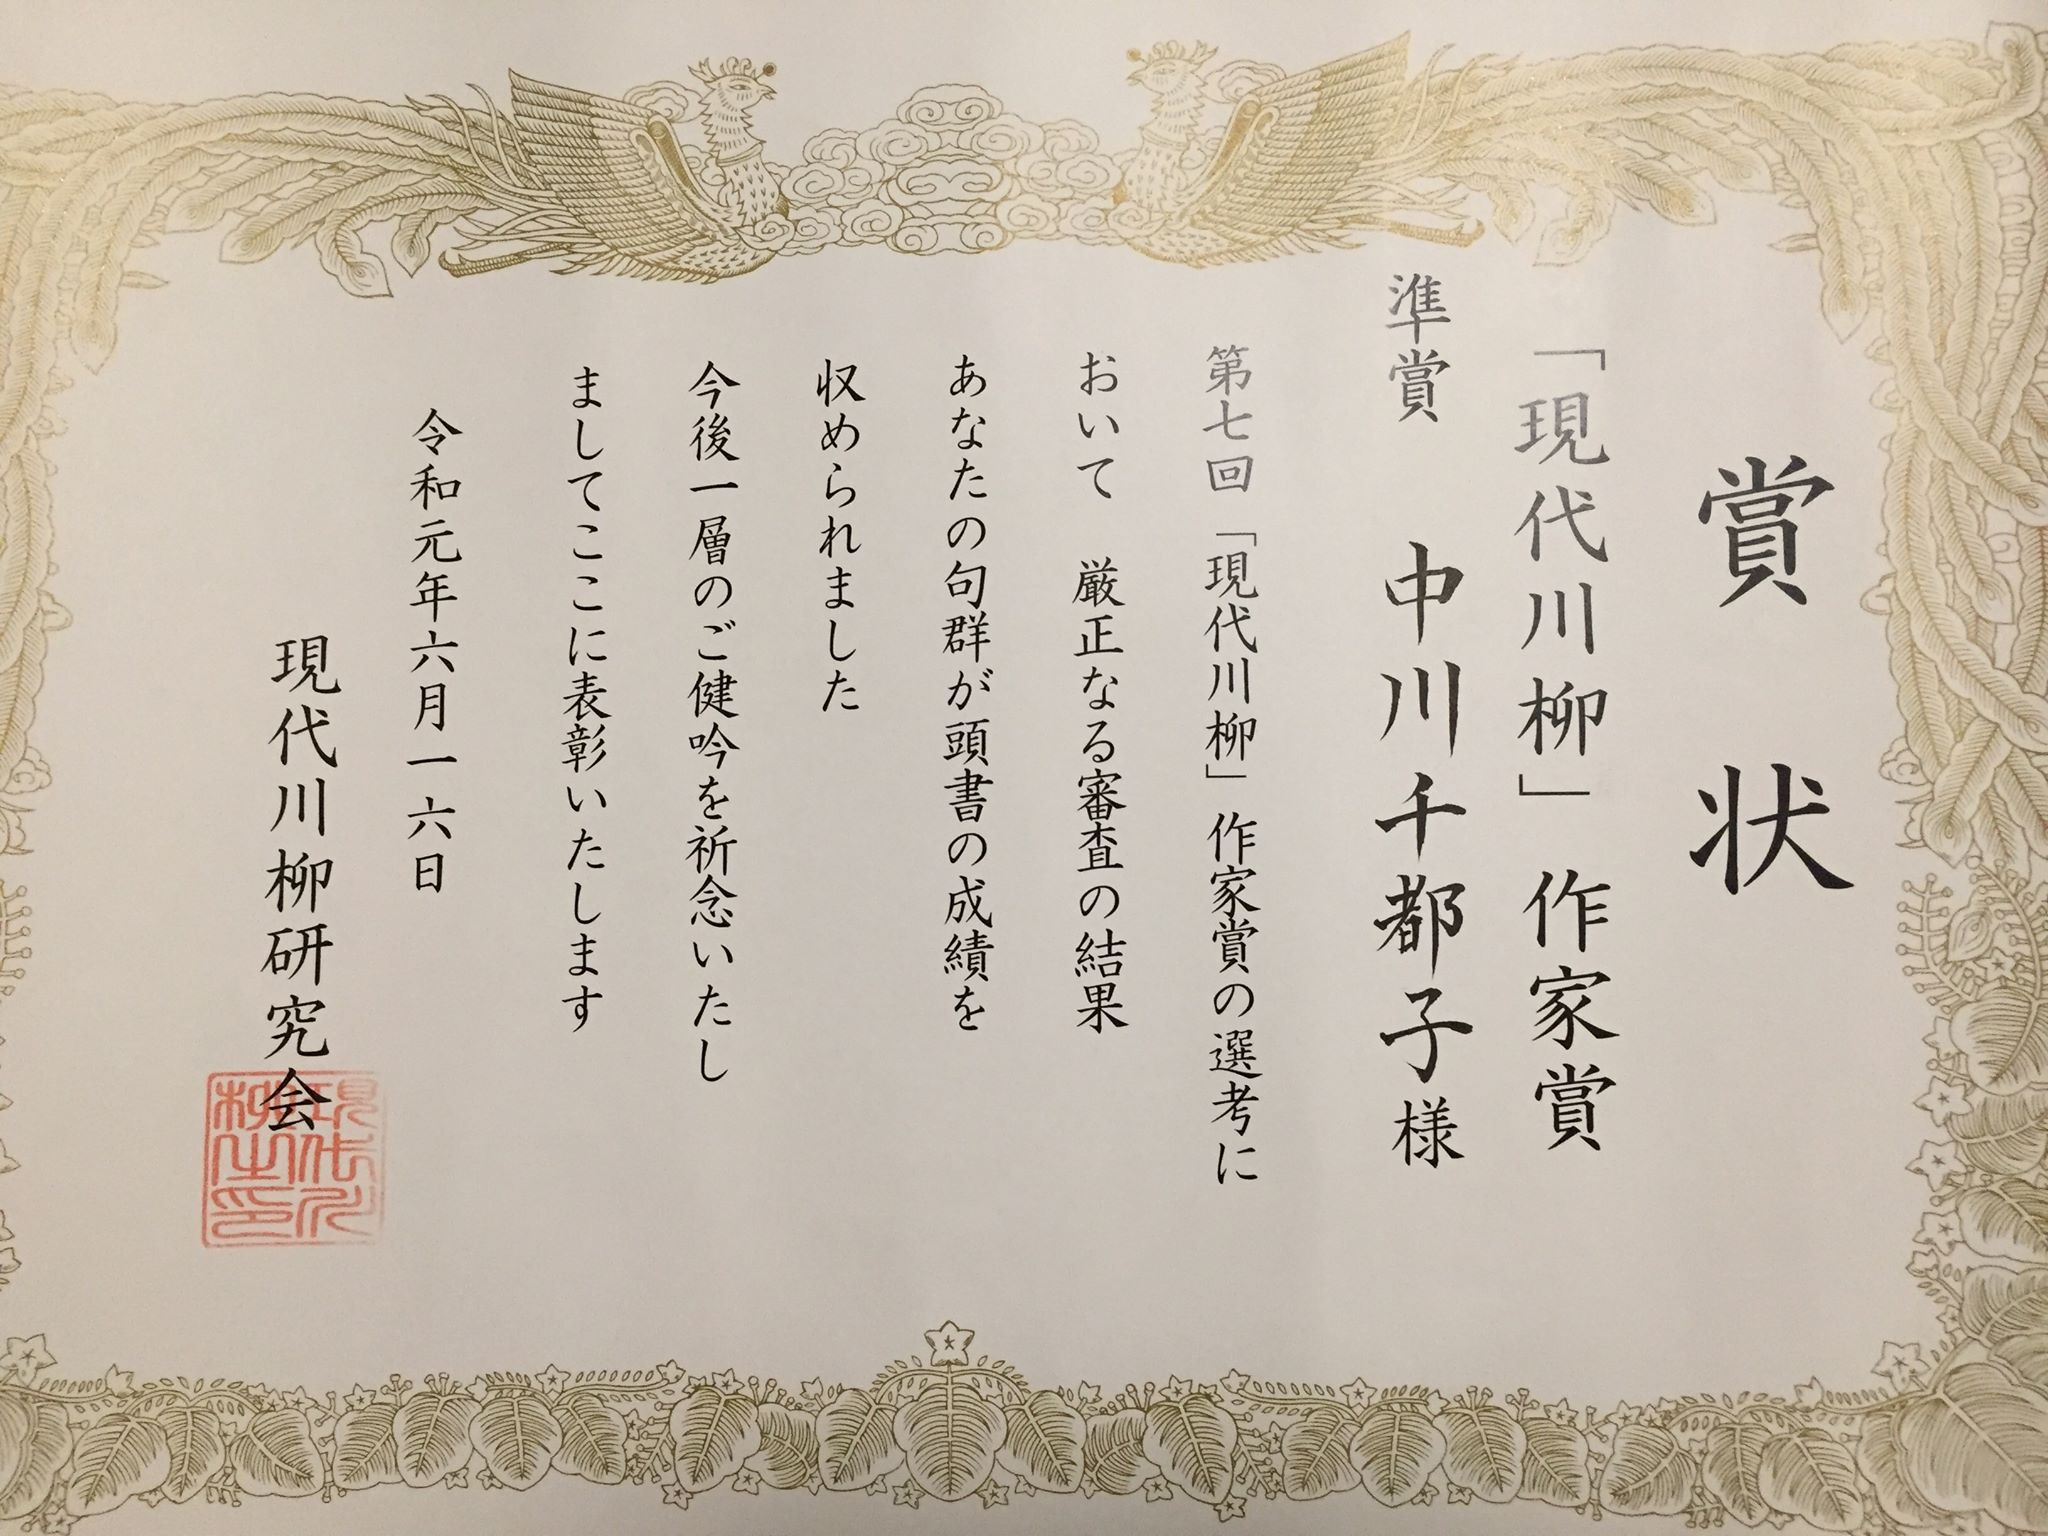 賞状
「現代川柳」作家賞
準賞　中川千都子様
第七回「現代川柳」作家賞の選考に
おいて　厳正なる審査の結果
あなたの句群が頭書の成績を
収められました
今後一層のご健吟を祈念いたし
ましてここに表彰いたします
令和元年六月一六日
現代川柳研究会
現代川
柳之印